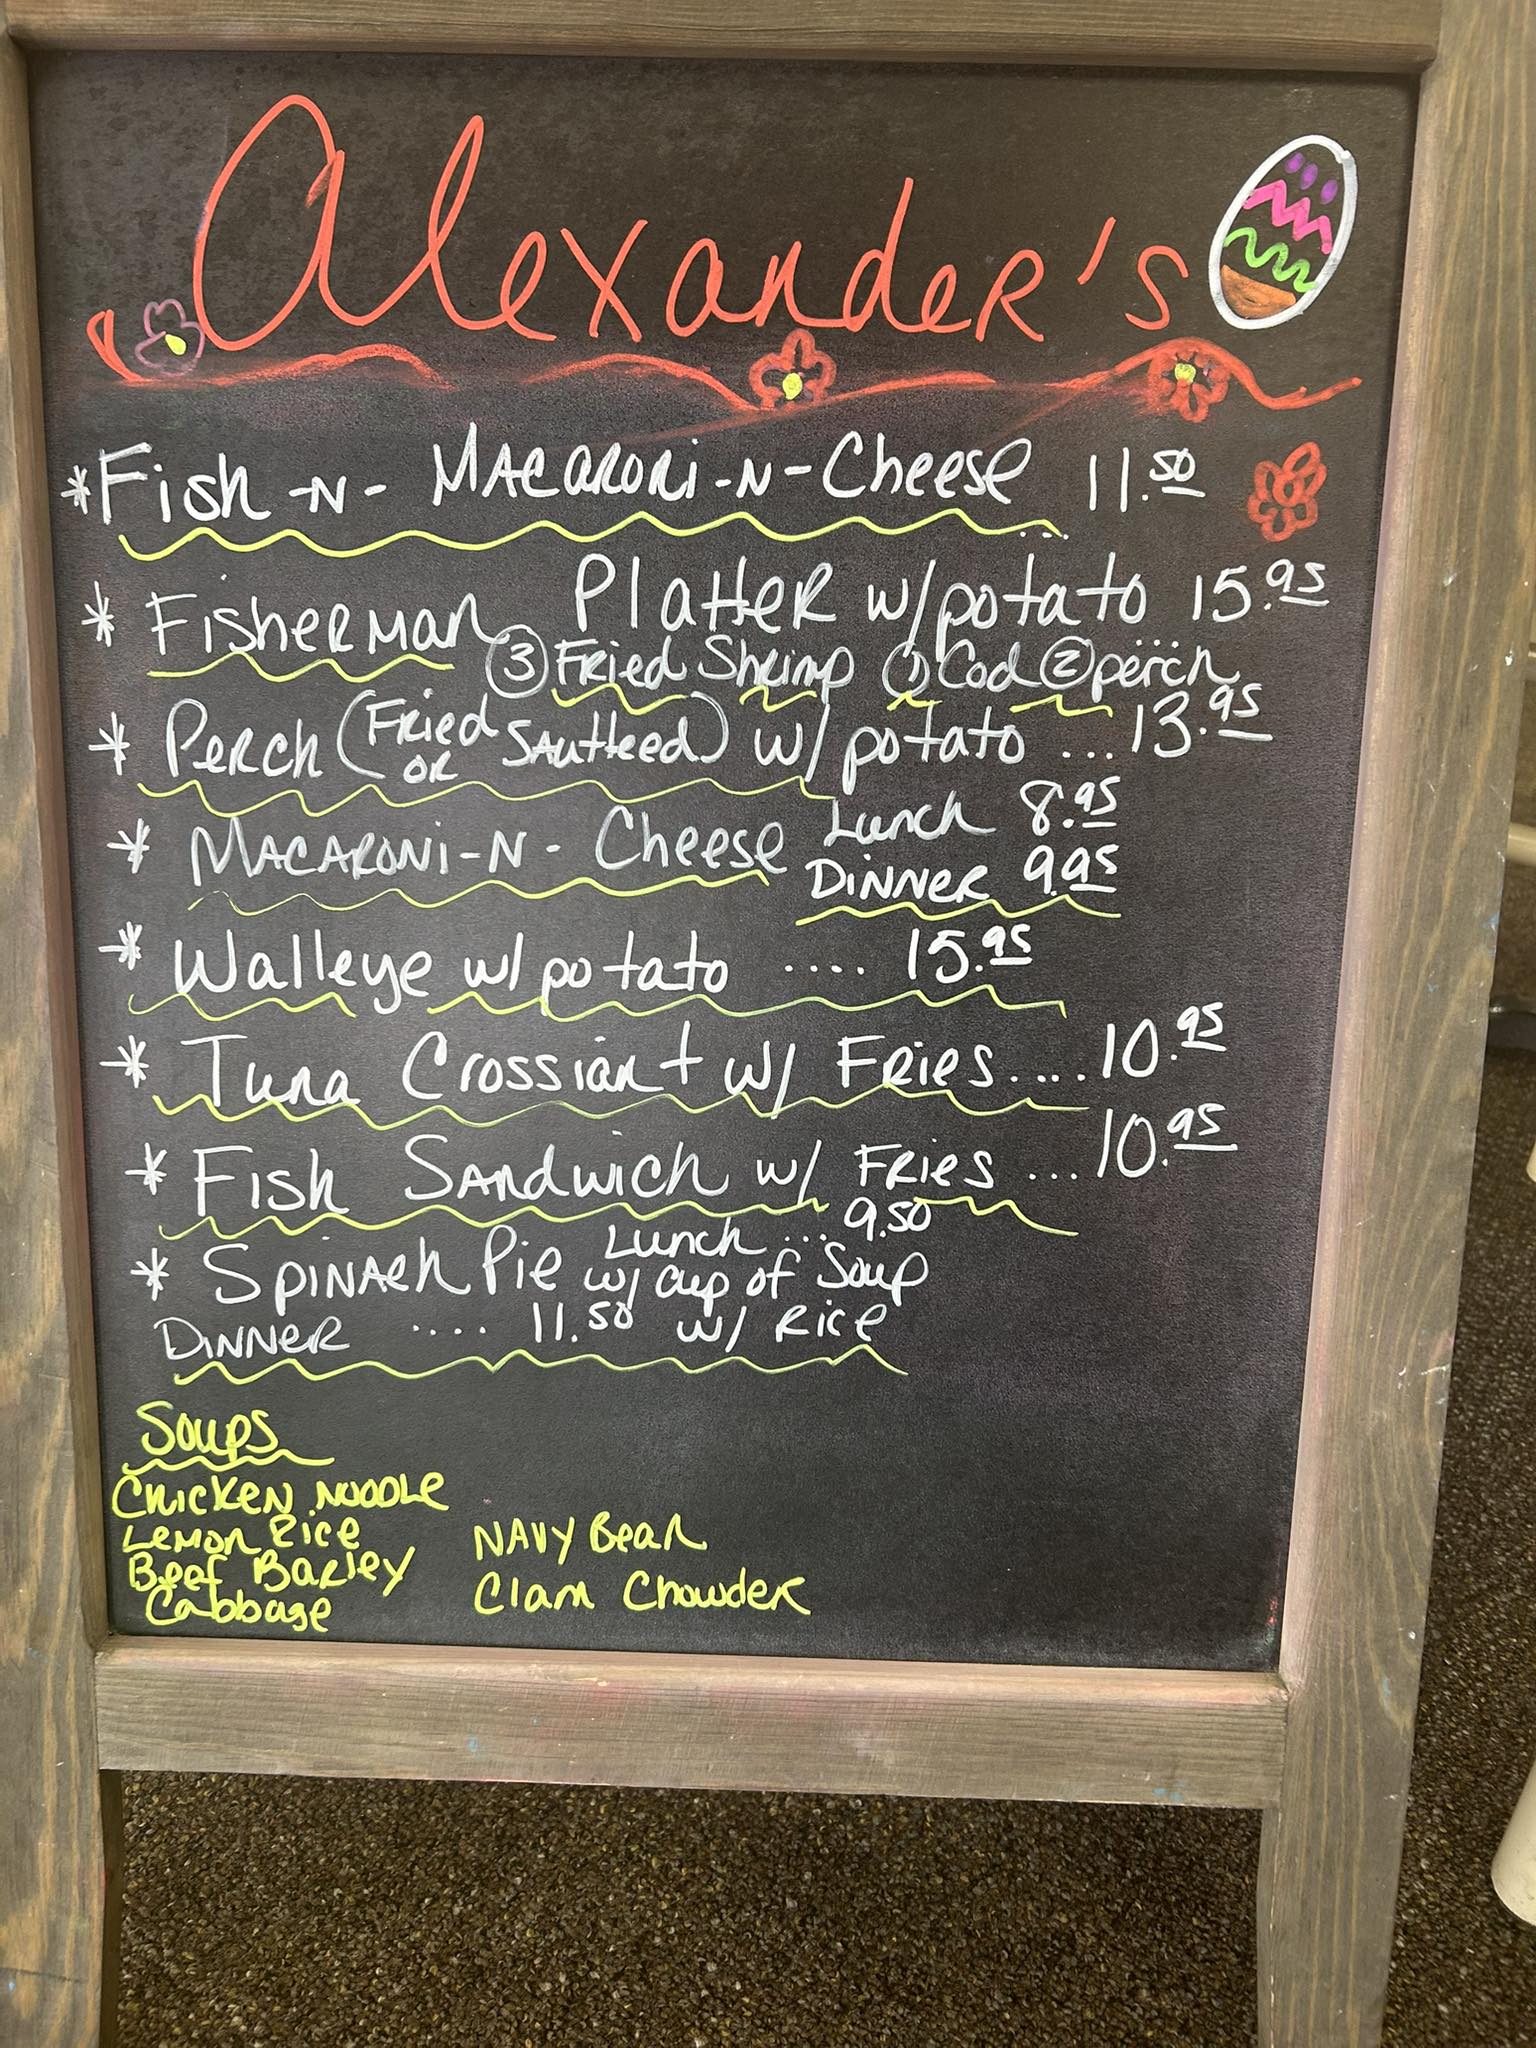 Alexander's
*Fish-N- Macaroni-N-Cheese 11.50
* Fisherman Platter w/potato 15.95
③ Fried Shrimp ① Cod ② perch
* Perch (Fried or Sautteed) w/ potato ... 13.95
* Macaroni-N- Cheese Lunch 8.95
Dinner 9.95
* Walleye w/potato .... 15.95
* Tuna Crossiant w/ Fries.... 10.95
* Fish Sandwich w/ Fries ... 10.95
* Spinach Pie Lunch ... 9.50
w/ cup of Soup
Dinner .... 11.50 w/ Rice
Soups
Chicken Noodle
Lemon Rice
Beef Barley
Cabbage
Navy Bean
Clam Chowder